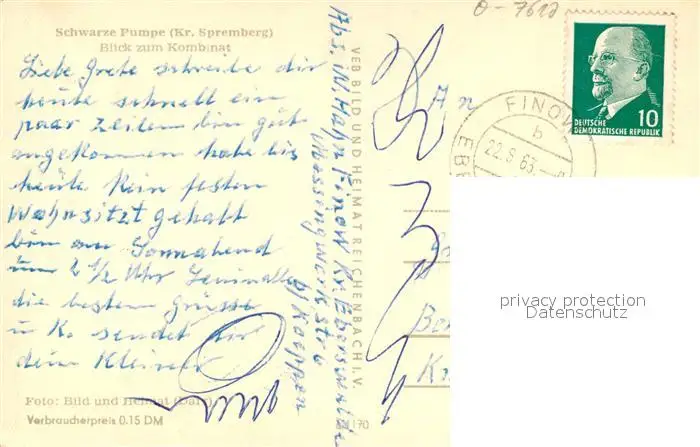 Schwarze Pumpe (Kr. Spremberg)
Blick zum Kombinat
Liebe Grete schreibe dir
heute schnell ein
paar Zeilen bin gut
angekommen habe bis
heute kein festen
Wohnsitzt gehabt
bin am Sonnabend
um 2 1/2 Uhr
die besten Grüsse
u K. sendet dir
dein Kleiner
Foto: Bild und Heimat
Verbraucherpreis 0.15 DM
Abs. W. Hahn Finow Kr. Eberswalde
Messingwerkstr 6
b/ Koeppen
VEB BILD UND HEIMAT REICHENBACH I. V.
170
An
FINOW
b
22.8.63
EBE
10
DEUTSCHE
DEMOKRATISCHE REPUBLIK
privacy protection
Datenschutz